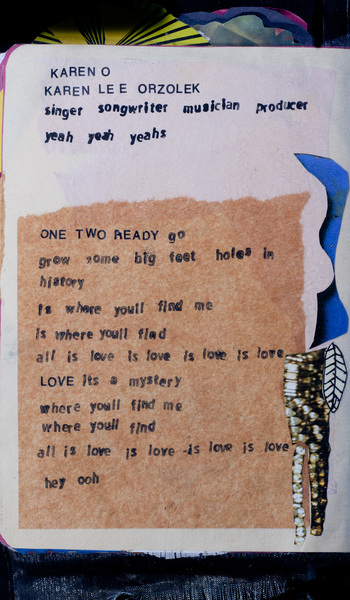 KAREN O
KAREN LEE ORZOLEK
singer songwriter musician producer
yeah yeah yeahs
ONE TWO READY go
grow some big feet holes in
history
is where youll find me
is where youll find
all is love is love is love is love
LOVE its a mystery
where youll find me
where youll find
all is love is love is love is love
hey ooh